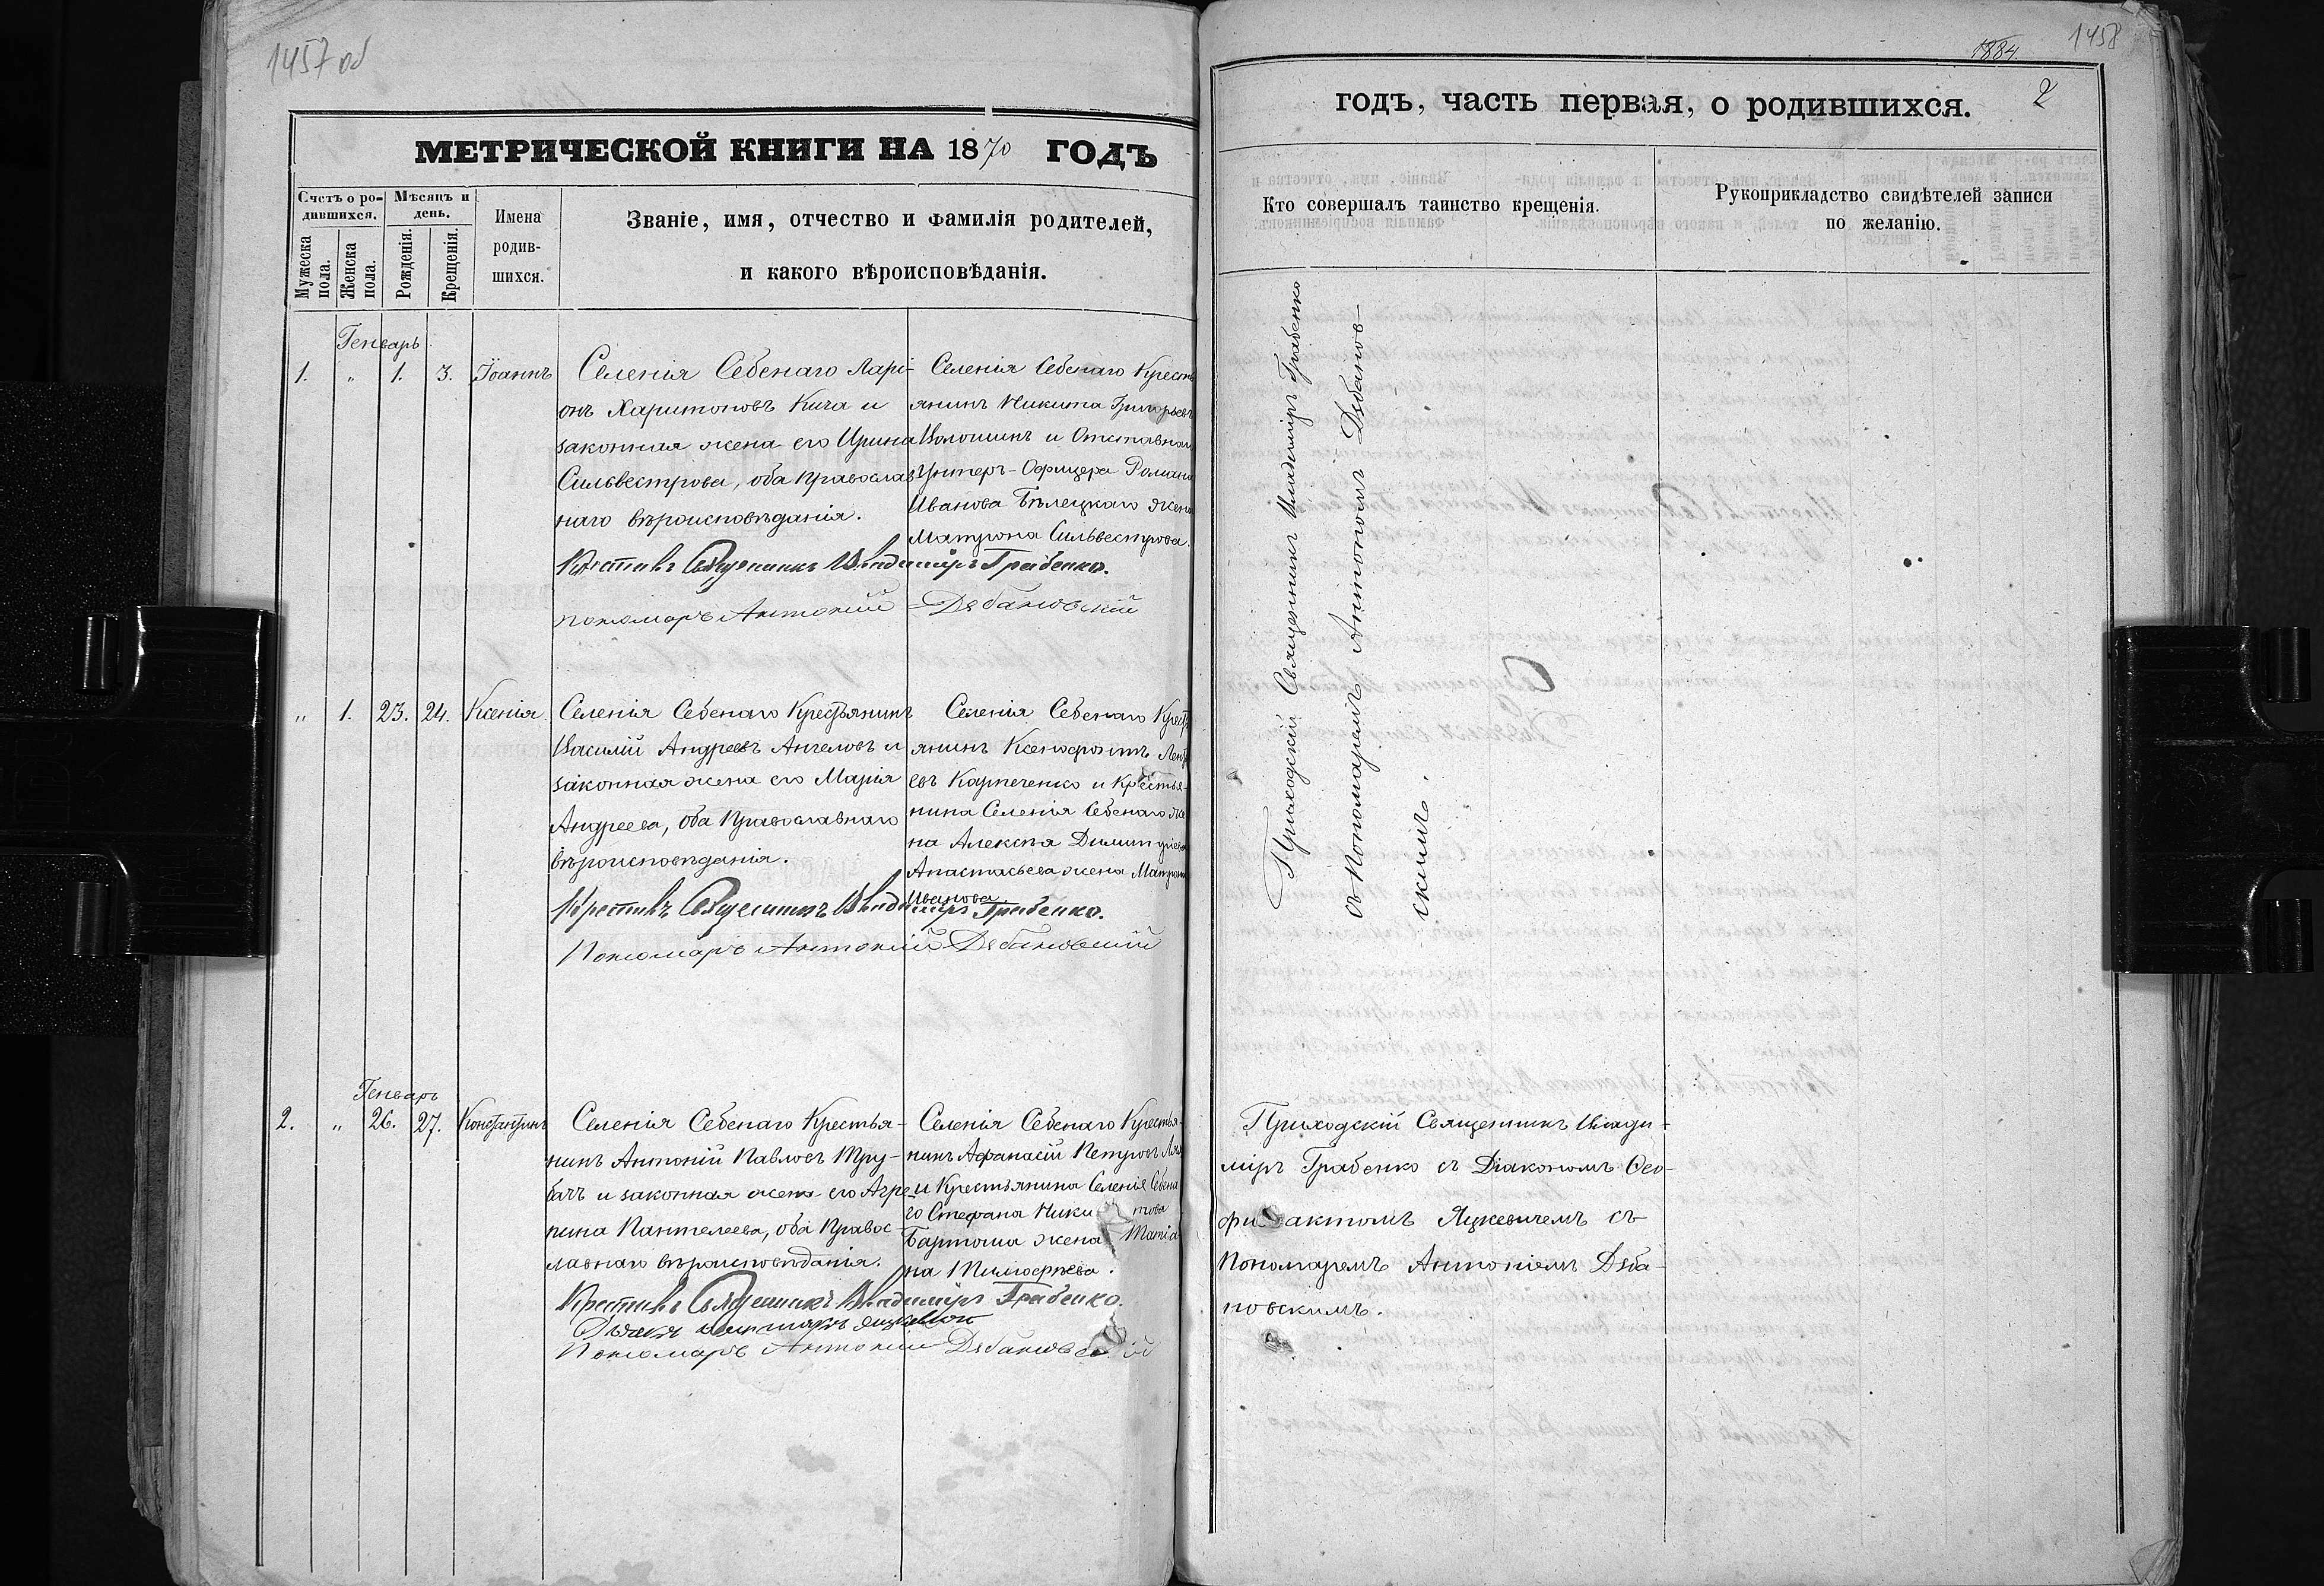 1457 об
МЕТРИЧЕСКОЙ КНИГИ НА 1870 ГОДЪ
Счетъ о ро-
дившихся.
Мѣсяцъ и
день.
Мужеска
пола.
Женска
пола.
Рожденія.
Крещенія.
Имена
родив-
шихся.
Званіе, имя, отчество и фамилія родителей,
и какого вѣроисповѣданія.
Генварь
1. " 1. 3. Іоаннъ
Селенія Себенаго Лари-
онъ Харитоновъ Кича и
законная жена его Ирина
Сильвестрова, оба Православ
наго вѣроисповѣданія.
Селенія Себенаго Кресть
янинъ Никита Григорьевъ
Волошинъ и Отставнаго
Унтеръ-Офицера Романа
Иванова Бѣлецкаго жена
Матрона Сильвестрова.
Крестилъ Священникъ Владиміръ Грабенко.
пономарь Антоній Дебановскій
" 1. 23. 24. Ксенія
Селенія Себенаго Крестьянинъ
Василій Андреевъ Ангеловъ и
законная жена его Марія
Андреева, оба Православнаго
вѣроисповѣданія.
Селенія Себенаго Крест
янинъ Ксенофонтъ
евъ Карпеченко и Крестья-
нина Селенія Себенаго
на Алексѣя Димитріева
Анастасьева жена Матрона
Иванова.
Крестилъ Священникъ Владиміръ Грабенко.
Пономарь Антоній Дебановскій
Генварь
2. " 26. 27. Константинъ
Селенія Себенаго Крестья-
нинъ Антоній Павловъ Тру-
бачъ и законная жена его Агре-
пина Пантелеева, оба Правос-
лавнаго вѣроисповѣданія.
Селенія Себенаго Крестья-
нинъ Афанасій Петровъ
и Крестьянина Селенія Себена
го Стефана Никитова
Бартоша жена
на Тимофѣева.
Крестилъ Священникъ Владиміръ Грабенко.
Пономарь Антоній Дебановскій
1884.
1458
годъ, часть первая, о родившихся.
2
Кто совершалъ таинство крещенія.
Рукоприкладство свидѣтелей записи
по желанію.
Приходскій Священникъ Владиміръ Грабенко
съ Пономаремъ Антоніомъ Дебанов-
скимъ.
Приходскій Священникъ Влади-
міръ Грабенко съ Діакономъ Фео-
филактомъ Яцкевичемъ съ
Пономаремъ Антоніемъ Деба-
новскимъ.